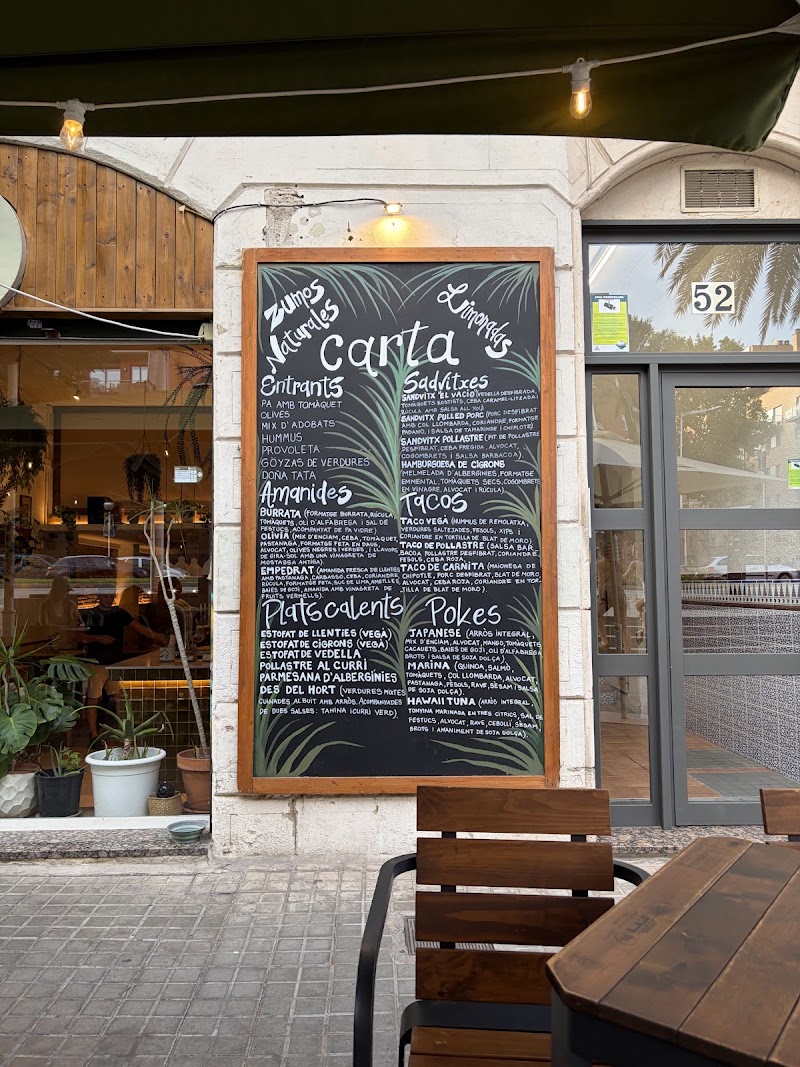 Zumos
Naturales
Limonadas
carta
Entrants
PA AMB TOMÀQUET
OLIVES
MIX D'ADOBATS
HUMMUS
PROVOLETA
GÖYZAS DE VERDURES
DOÑA TATA
Amanides
BURRATA (FORMATGE BURRATA, RÚCULA,
TOMÀQUETS, OLI D'ALFÀBREGA I SAL DE
FESTUCS, ACOMPANYAT DE PA VIDRE).
OLIVIA (MIX D'ENCIAM, CEBA, TOMÀQUET,
PASTANAGA, FORMATGE FETA EN DAUS,
ALVOCAT, OLIVES NEGRES I VERDES, I LLAVORS
DE GIRA-SOL AMB UNA VINAGRETA DE
MOSTASSA ANTIGA).
EMPEDRAT (AMANIDA FRESCA DE LLENTIES
AMB PASTANAGA, CARBASSÓ, CEBA, CORIANDRE,
RÚCULA, FORMATGE FETA, SUC DE LIMA, AMETLLES,
BAIES DE GOJI, AMANIDA AMB VINAGRETA DE
FRUITS VERMELLS).
Plats calents
ESTOFAT DE LLENTIES (VEGÀ)
ESTOFAT DE CIGRONS (VEGÀ)
ESTOFAT DE VEDELLA
POLLASTRE AL CURRI
PARMESANA D'ALBERGINIES
DES DEL HORT (VERDURES MIXTES
CUINADES AL BUIT AMB ARRÒS. ACOMPANYADES
DE DUES SALSES: TAHINA I CURRI VERD).
Sadvitxes
SANDVITX "EL VACIO" (VEDELLA DESFIBRADA,
TOMÀQUETS ROSTITS, CEBA CARAMEL·LITZADA I
RÚCULA AMB SALSA ALI JOLI)
SANDVITX PULLED PORC (PORC DESFIBRAT
AMB COL LLOMBARDA, CORIANDRE, FORMATGE
PADANO, I SALSA DE TAMARINDE I CHIPLOTE)
SANDVITX POLLASTRE (PIT DE POLLASTRE
DESFIBRAT, CEBA FREGIDA, ALVOCAT,
COGOMBRETS I SALSA BARBACOA).
HAMBURGUESA DE CIGRONS
MELMELADA D'ALBERGINIES, FORMATGE
EMMENTAL, TOMÀQUETS SECS, COGOMBRETS
EN VINAGRE, ALVOCAT I RÚCULA).
Tacos
TACO VEGÀ (HUMMUS DE REMOLATXA,
VERDURES SALTEJADES, FESOLS, XIPS I
CORIANDRE EN TORTILLA DE BLAT DE MORO).
TACO DE POLLASTRE (SALSA BAR
BACOA, POLLASTRE DESFIBRAT, CORIANDRE,
FESOLS, CEBA ROJA.
TACO DE CARNITA (MAIONESA DE
CHIPOTLE, PORC DESFIBRAT, BLAT DE MORO,
ALVOCAT, CEBA ROJA, CORIANDRE EN TOR
TILLA DE BLAT DE MORO).
Pokes
JAPANESE (ARRÒS INTEGRAL,
MIX D'ENCIAM, ALVOCAT, MANGO, TOMÀQUETS
CACAUETS, BAIES DE GOJI, OLI D'ALFÀBREGA
BROTS I SALSA DE SOJA DOLÇA).
MARINA (QUINOA, SALMÓ,
TOMÀQUETS, COL LLOMBARDA, ALVOCAT,
PASTANAGA, PÈSOLS, RAVE, SÈSAM I SALSA
DE SOJA DOLÇA).
HAWAII TUNA (ARRÒS INTEGRAL
TONYINA MARINADA EN TRES CÍTRICS, SAL DE
FESTUCS, ALVOCAT, RAVE, CEBOLLÍ, SÈSAM,
BROTS I AMANIMENT DE SOJA DOLÇA).
52